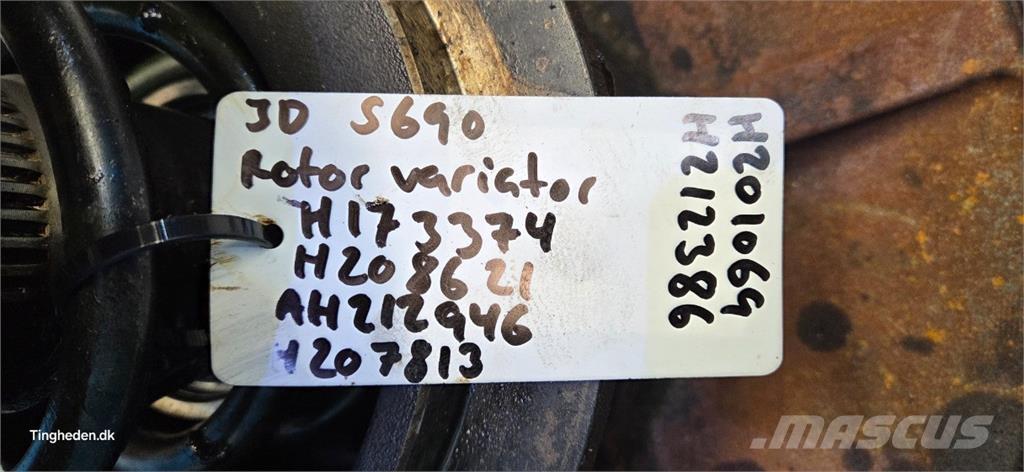 JD S690
Rotor variator
H173374
H208621
AH212946
H207813
H201069
H212386
Tingheden.dk
MASCUS